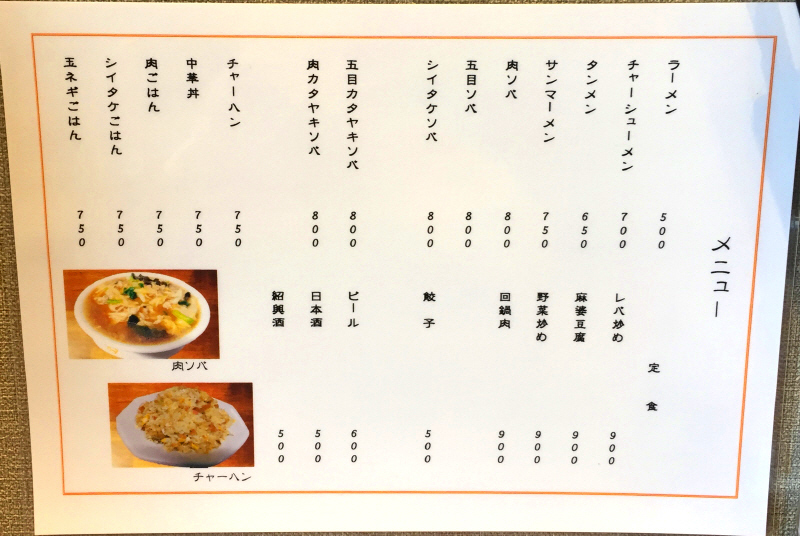 メニュー
ラーメン 500
チャーシューメン 700
タンメン 650
サンマーメン 750
肉ソバ 800
五目ソバ 800
シイタケソバ 800
五目カタヤキソバ 800
肉カタヤキソバ 800
チャーハン 750
中華丼 750
肉ごはん 750
シイタケごはん 750
玉ネギごはん 750
定食
レバ炒め 900
麻婆豆腐 900
野菜炒め 900
回鍋肉 900
餃子 500
ビール 600
日本酒 500
紹興酒 500
肉ソバ
チャーハン